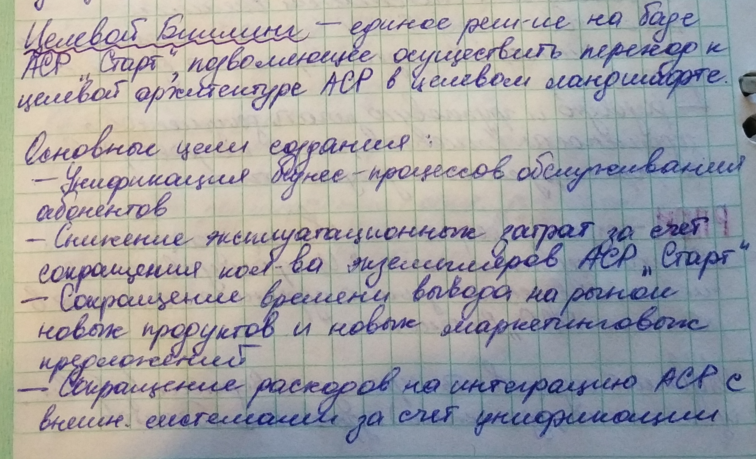 Целевой Биллинг – единое реш-ие на базе
АСР „Старт", позволяющее осуществить переход к
целевой архитектуре АСР в целевом ландшафте.
Основные цели создания:
– Унификация бизнес-процессов обслуживания
абонентов
– Снижение эксплуатационных затрат за счет
сокращения кол-ва экземпляров АСР „Старт"
– Сокращение времени вывода на рынок
новых продуктов и новых маркетинговых
предложений
– Сокращение расходов на интеграцию АСР с
внешн. системами за счет унификации